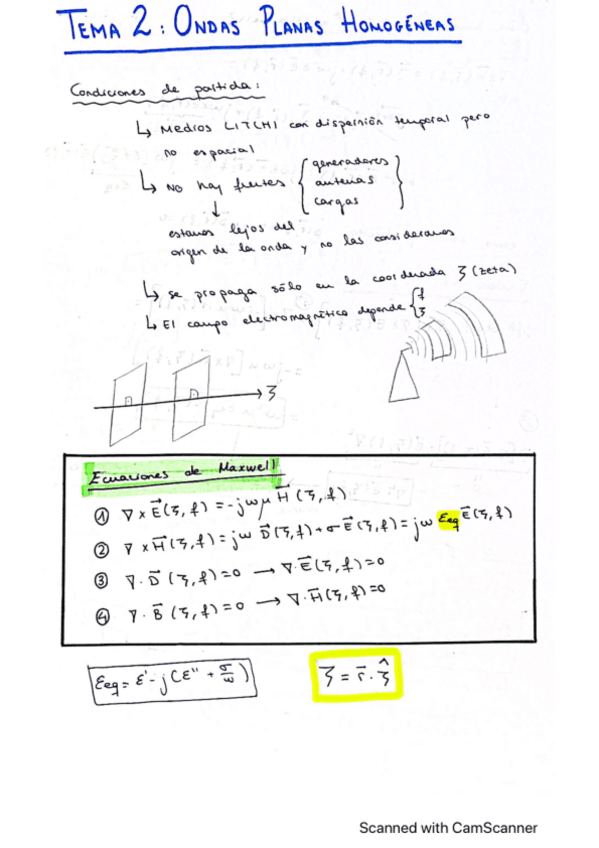 TEMA 2: ONDAS PLANAS HOMOGÉNEAS
Condiciones de partida:
↳ Medios LITCHI con dispersión temporal pero
no espacial
↳ NO hay fuentes { generadores
antenas
cargas }
↓
estamos lejos del
origen de la onda y no las consideramos
↳ se propaga sólo en la coordenada ζ (zeta)
↳ El campo electromagnético depende { f
ζ
ζ
Ecuaciones de Maxwell
① ∇ × E⃗(ζ,f) = -jωμ H⃗(ζ,f)
② ∇ × H⃗(ζ,f) = jω D⃗(ζ,f) + σ E⃗(ζ,f) = jω Eeq E⃗(ζ,f)
③ ∇ · D⃗(ζ,f) = 0 → ∇ · E⃗(ζ,f) = 0
④ ∇ · B⃗(ζ,f) = 0 → ∇ · H⃗(ζ,f) = 0
Eeq = ε' - j(ε'' + σ/ω)
ζ = r⃗ · ζ̂
Scanned with CamScanner